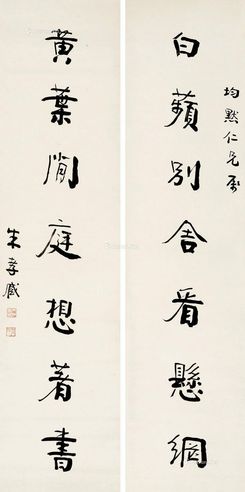 均默仁兄屬
白蘋別舍看懸網
黃葉閒庭想著書
朱孝臧